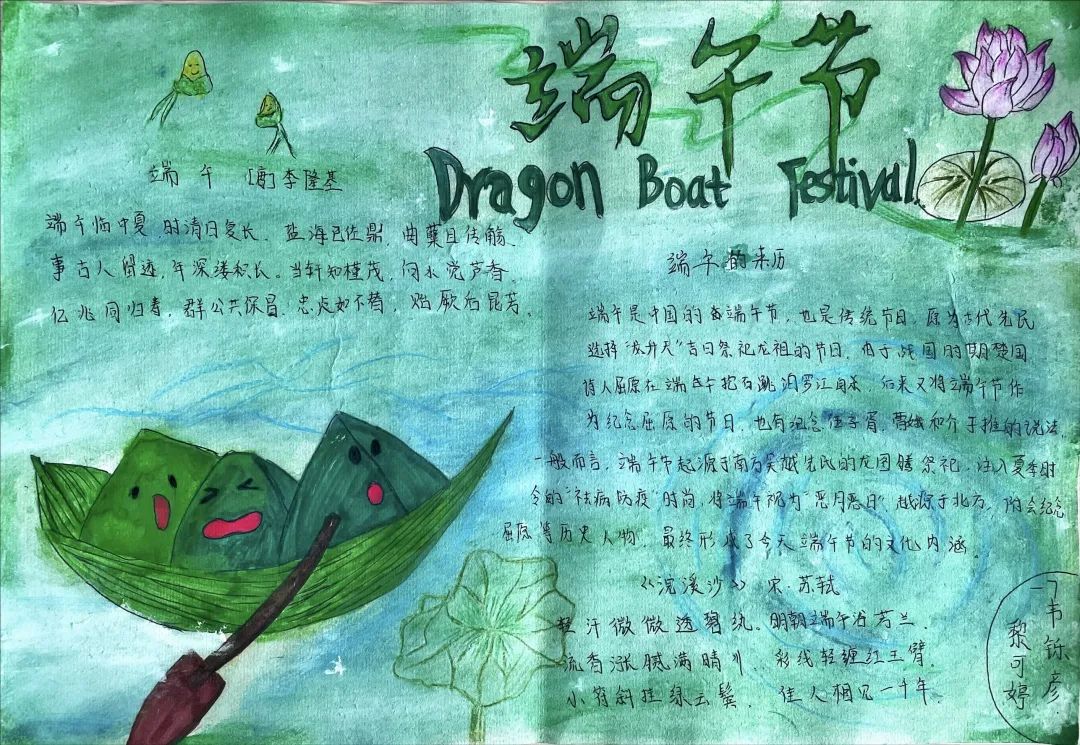 端午节
Dragon Boat Festival
端午 [唐]李隆基
端午临中夏,时清日复长。盐海已佐鼎,曲蘖且传觞。
事古人留迹,年深缕积长。当轩知槿茂,向水觉芦香。
亿兆同归寿,群公共保昌。忠贞如不替,贻厥后昆芳。
端午的来历
端午是中国的端午节,也是传统节日,原为古代先民
选择"龙升天"吉日祭祀龙祖的节日,由于战国时期楚国
诗人屈原在端午抱石跳汨罗江自杀,后来又将端午节作
为纪念屈原的节日,也有纪念伍子胥,曹娥和介子推的说法,
一般而言,端午节起源于南方吴越先民的龙图腾祭祀,注入夏季时
令的"祛病防疫"时尚,将端午视为"恶月恶日"起源于北方,附会纪念
屈原等历史人物,最终形成了今天端午节的文化内涵。
《浣溪沙》 宋·苏轼
轻汗微微透碧纨。明朝端午浴芳兰。
流香涨腻满晴川。彩线轻缠红玉臂。
小符斜挂绿云鬟。佳人相见一千年。
韦铄彦
黎可婷